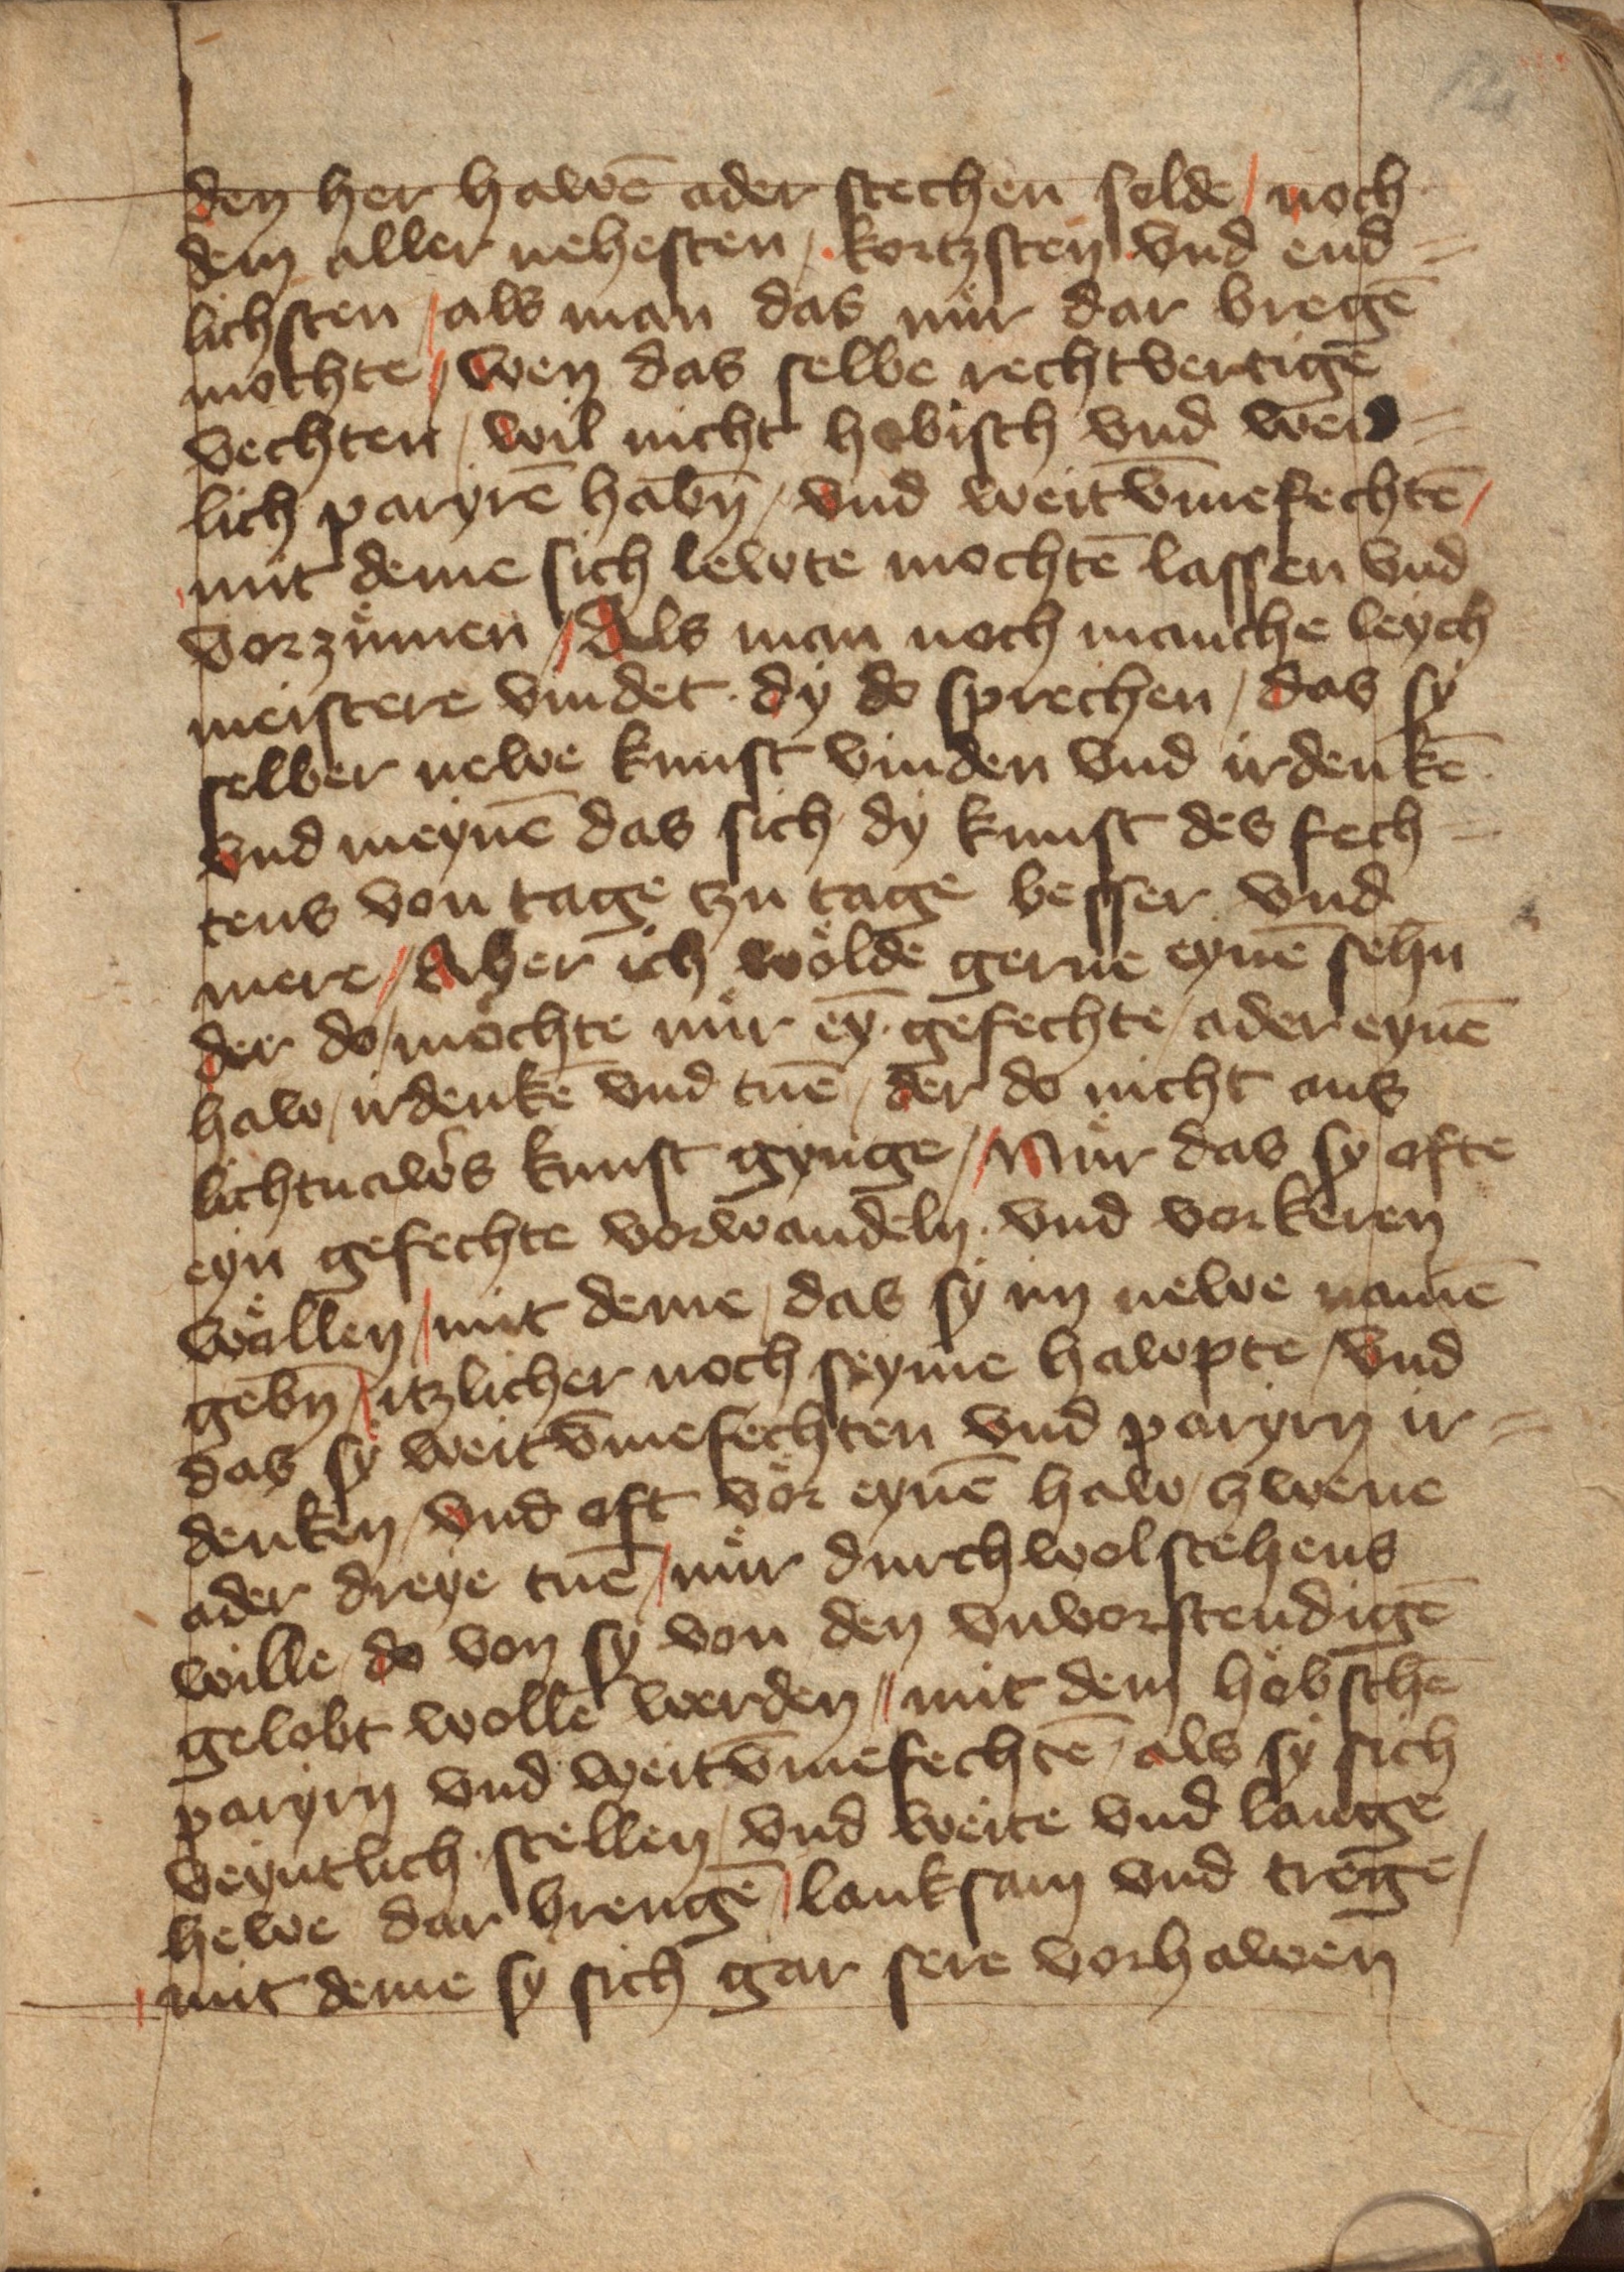 den her hawē ader stechen selde / noch
dem aller nehesten / kortzsten vnd end=
lichsten / als man das nür dar bregē
mochte / wen das selbe rechtvertigē
vechten / wil nicht hobisch vnd weid=
lich paryrē habn̄ / vnd weitv̄mefechtē /
mit deme sich lewte mochtē lassen vnd
vorzümen / Als man noch manche leych
meistere vindet · dy do sprechen / das sy
selber newe kunst vinden vnd irdenkē ·
vnd meynē das sich dy kunst des fech=
tens von tage tzu tage besser vnd
mere / Aber ich wölde gerne eynē sehn
der do / möchte nür eȳ · gefechte / ader eynē
haw / irdenkē vnd tuē / der do nicht aus
lichtnaw̓s kunst gynge / Nür das sy ofte
eyn gefechte vorwandeln · vnd vorkeren
wöllen / mit deme / das sy im newe namē
gebn̄ / itzlicher noch seyme hawpte / vnd
das sy weitv̄mefechten vnd paryrn ir=
denken / vnd oft vör eynē haw / zwene
ader dreye tuē / nür durch wolstehens
wille / do von sy von den vnvorstendigē
gelobt wollē werden / mit dem höbschē
paryrn vnd weitv̄mefechtē / als sy sich
veyntlich · stellen / vnd weite vnd lange
hewe dar brengē / lanksam vnd trege /
mit deme sy sich gar sere vorhawen